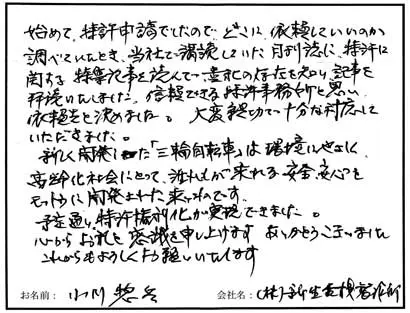 始めて、特許申請でしたので どこに、依頼していいのか
調べていたとき、当社で購読していた月刊誌に、特許に
関する特集記事を読んで の存在を知り、記事を
拝読いたしました。信頼できる特許事務所と思い
依頼を決めました。大変親切で十分な対応を
いただきました。
新しく開発した「三輪自転車」は環境にやさしく、
高齢化社会にとって、誰れもが来れる安全、安心を
モットーに開発された来りものです。
予定通り特許権利化が実現できました。
心からお礼と感謝を申し上げます ありがとうございました
これからもよろしくお願いいたします
お名前: 小川
会社名: (株)